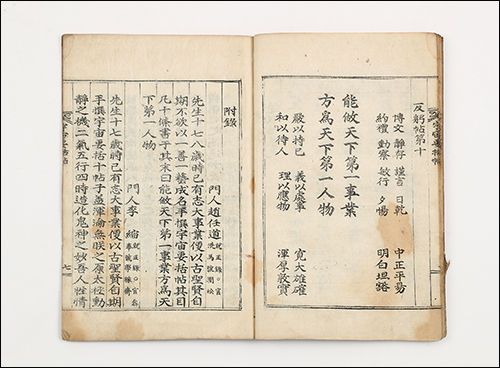 反躬帖第十
博文 靜存 謹言 日乾 中正平易
約禮 動察 敏行 夕惕 明白坦蕩
能做天下第一事業
方爲天下第一人物
嚴以持己 義以處事 寬大雄確
和以待人 理以應物 渾厚敦實
附錄
門人趙任道
先生十七八歲時已有志大事業便以古聖賢自
期不欲以一善一藝成名手撰宇宙要括帖其目
凡十條書于其末曰能做天下第一事業方爲天
下第一人物
門人李
先生十七歲時已有志大事業便以古聖賢自期
手撰宇宙要括十帖子盖渾淪無眹之原太極動
靜之機二氣五行四時造化鬼神之妙吾人性情